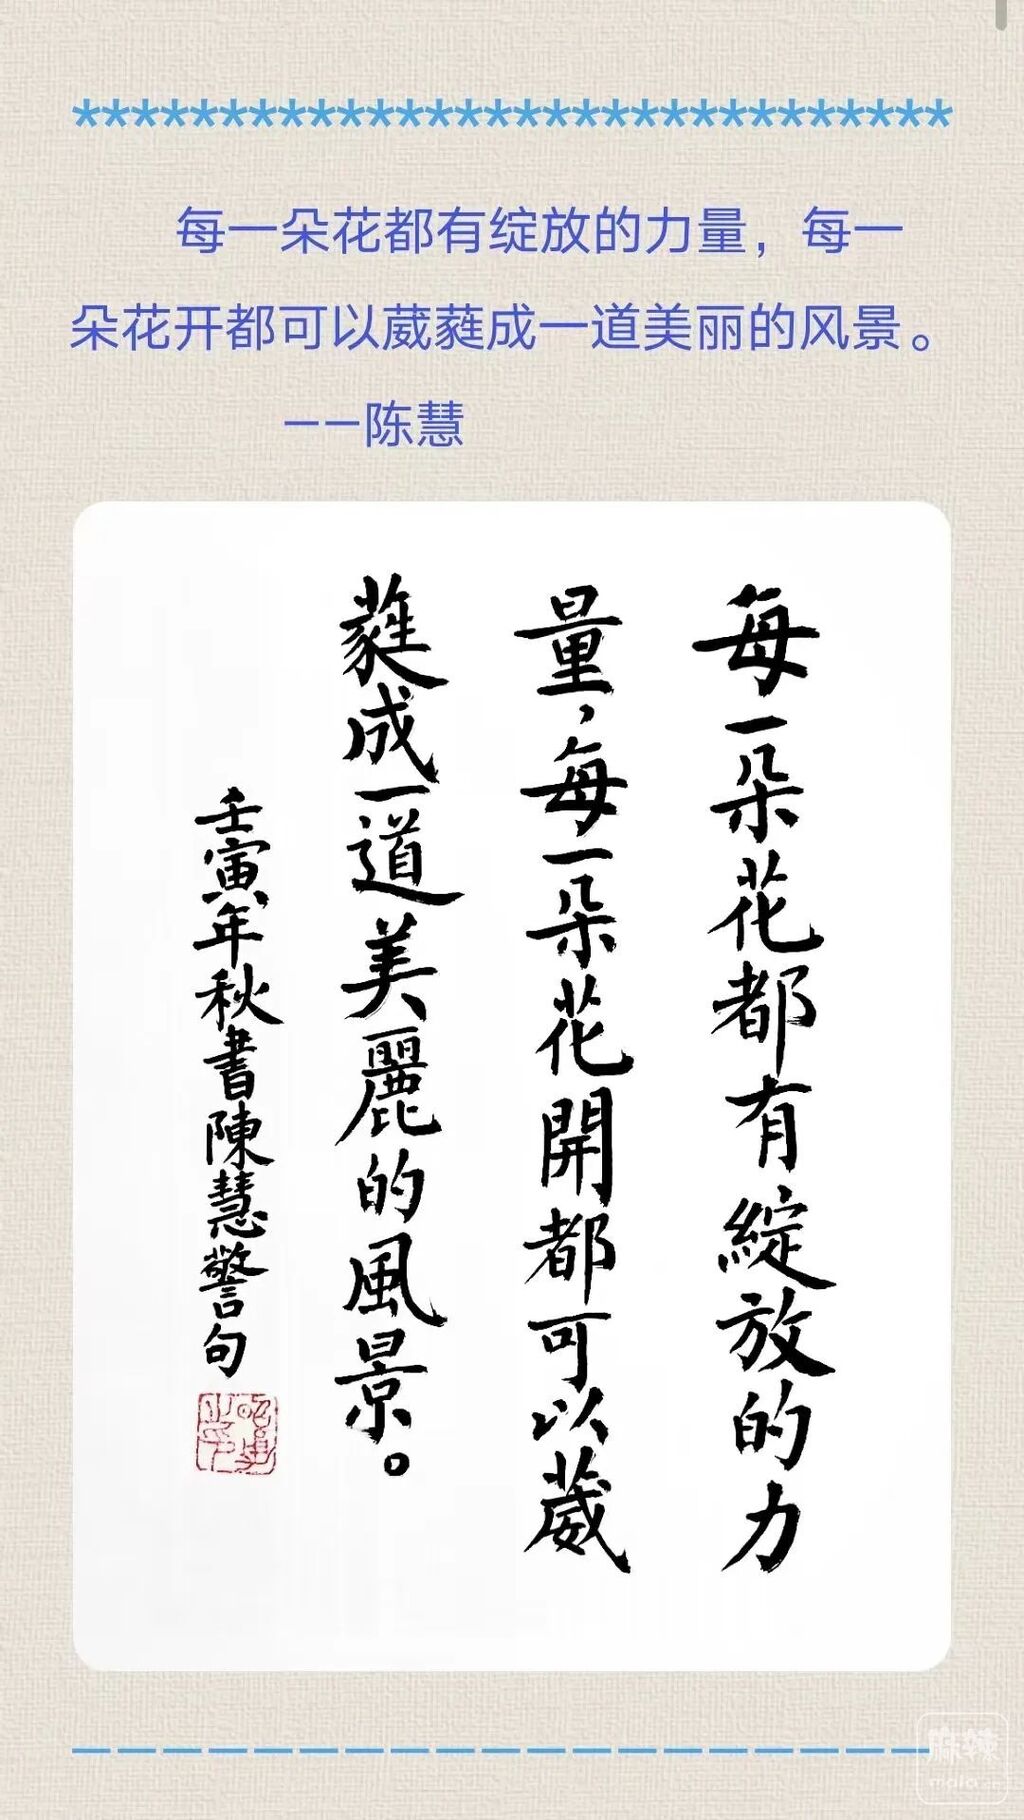 ******************************
每一朵花都有绽放的力量，每一
朵花开都可以葳蕤成一道美丽的风景。
——陈慧
每一朵花都有綻放的力
量，每一朵花開都可以葳
蕤成一道美麗的風景。
壬寅年秋書陳慧警句
麻辣
mala.cn